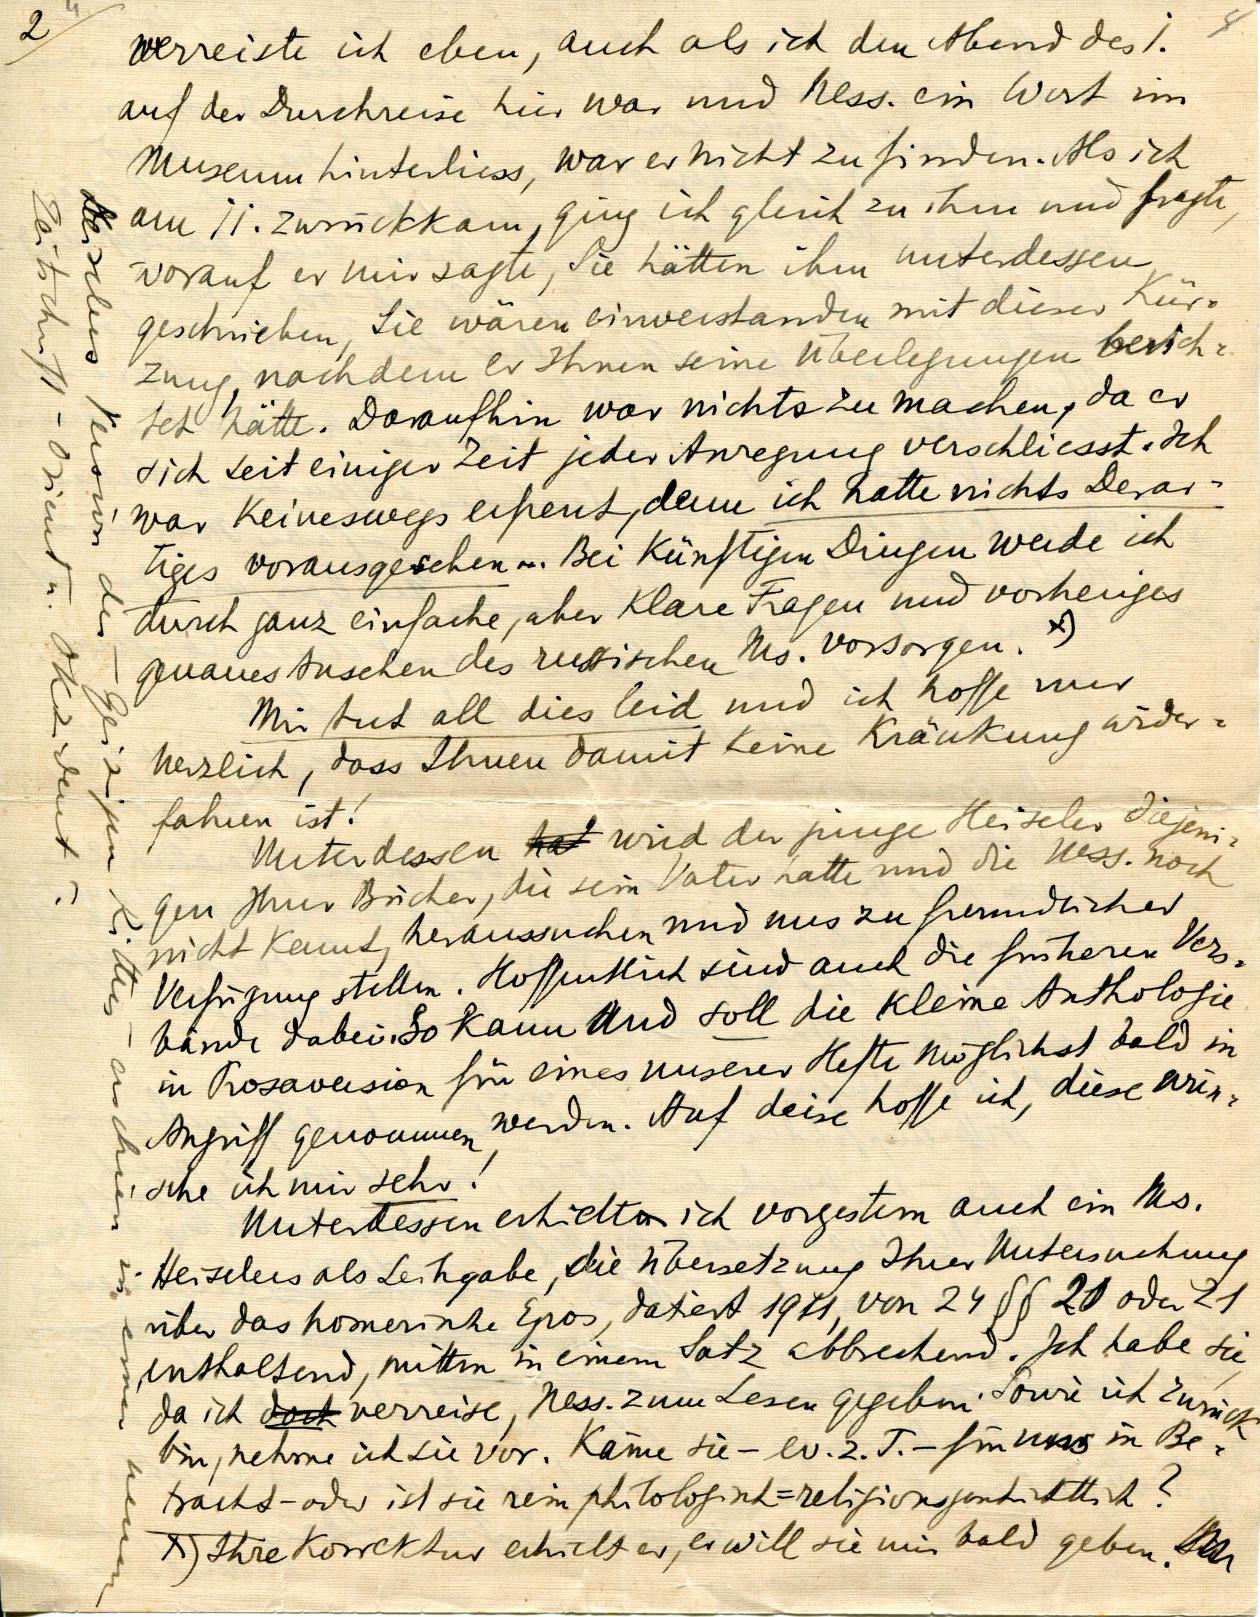 2/
4
verreiste ich eben, auch als ich den Abend des 1.
auf der Durchreise hier war und Ness. ein Wort im
Museum hinterliess, war er nicht zu finden. Als ich
am 11. zurückkam, ging ich gleich zu ihm und fragte,
worauf er mir sagte, Sie hätten ihm unterdessen
geschrieben, Sie wären einverstanden mit dieser Kür-
zung, nachdem er Ihnen seine Überlegungen berich-
tet hätte. Daraufhin war nichts zu machen, da er
sich seit einiger Zeit jeder Anregung verschliesst. Ich
war keineswegs erfreut, denn ich hatte nichts Derar-
tiges vorausgesehen. Bei künftigen Dingen werde ich
durch ganz einfache, aber klare Fragen und vorheriges
genaues Ansehen des russischen Ms. vorsorgen. x)
Mir tut all dies leid und ich hoffe nur
herzlich, dass Ihnen damit keine Kränkung wider-
fahren ist!
Unterdessen hat wird der junge Heiseler diejeni-
gen Ihrer Bücher, die sein Vater hatte und die Ness. noch
nicht kennt, heraussuchen und uns zu freundlicher
Verfügung stellen. Hoffentlich sind auch die früheren Vers-
bände dabei. So kann und soll die kleine Anthologie
in Prosaversion für eines unserer Hefte möglichst bald in
Angriff genommen werden. Auf diese hoffe ich, diese wün-
sche ich mir sehr!
Unterdessen erhielt ich vorgestern auch ein Ms.
Heiselers als Leihgabe, die Übersetzung Ihrer Untersuchung
über das homerische Epos, datiert 1911, von 24 §§ 20 oder 21
enthaltend, mitten in einem Satz abbrechend. Ich habe sie,
da ich doch verreise, Ness. zum Lesen gegeben. Sowie ich zurück
bin, nehme ich sie vor. Käme sie – ev. z. T. – für uns in Be-
tracht – oder ist sie rein philologisch=religionsgeschichtlich?
x) Ihre Korrektur erhielt er, er will sie mir bald geben.
Heiselers Version des – Geizigen Ritters – erschien in einer neuen
Zeitschrift – Orient u. Okzident –.